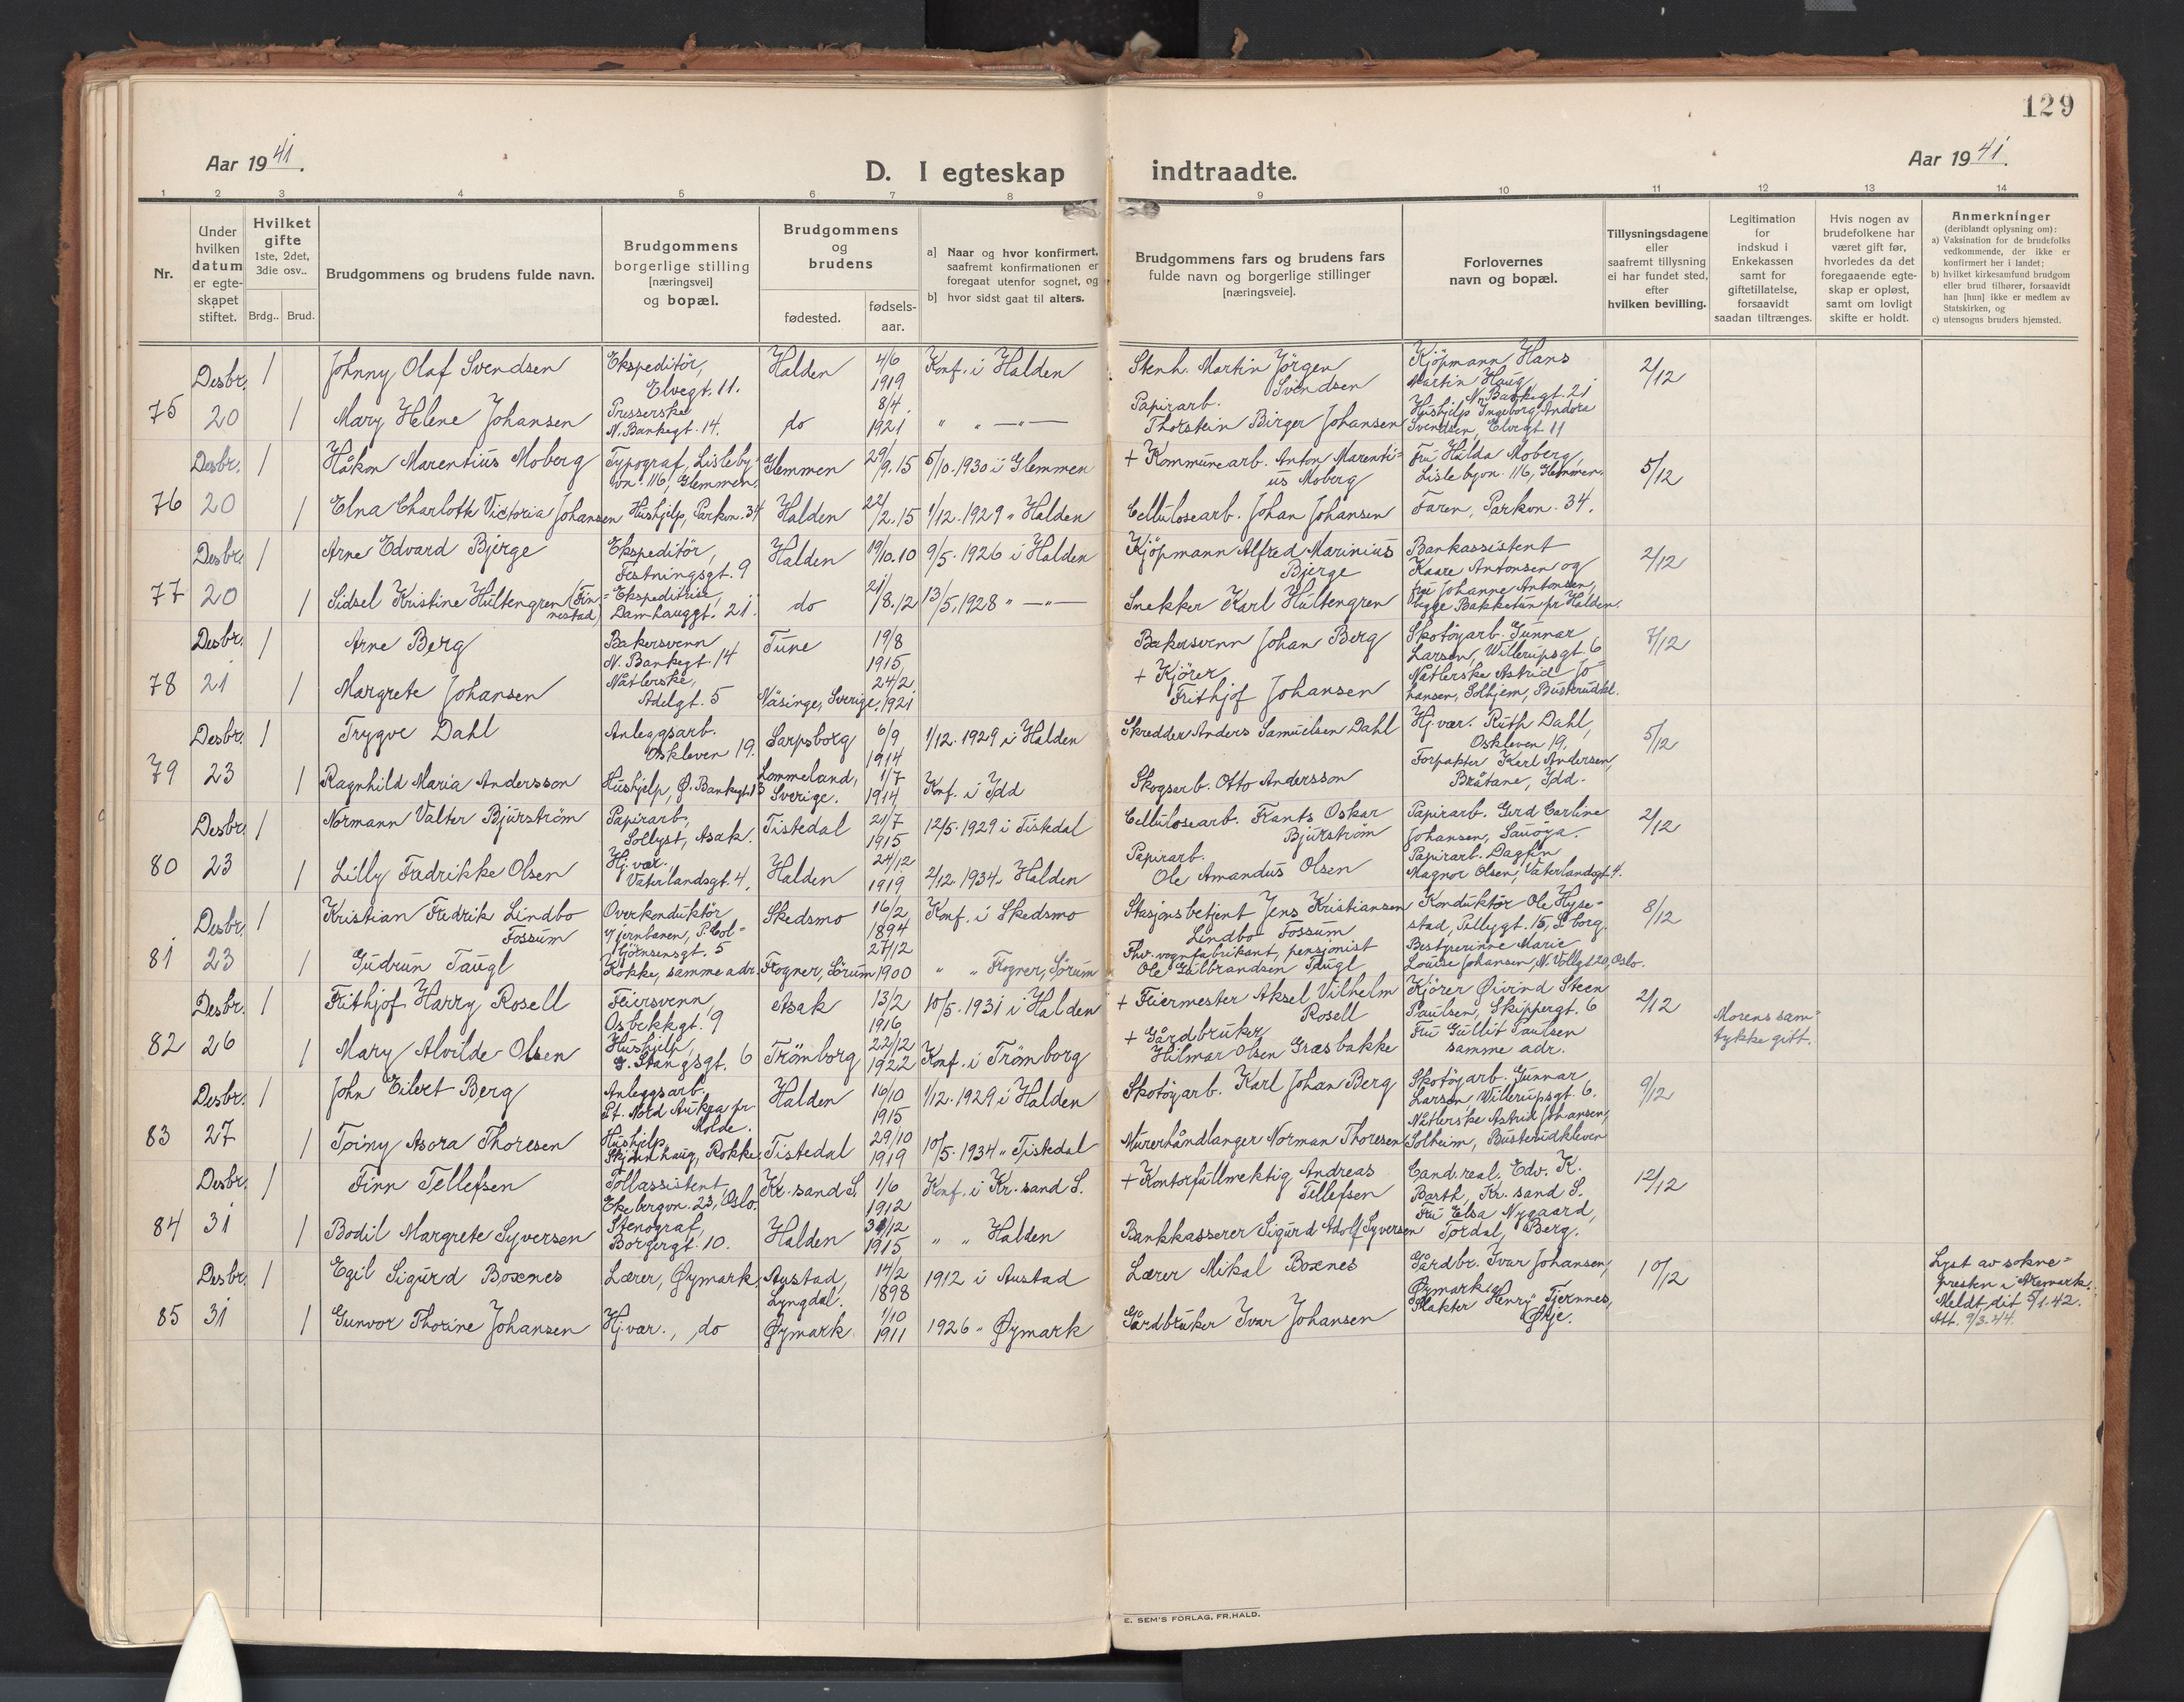 129
Aar 1941.
D. I egteskap indtraadte.
Aar 1941.
1 2 3 4 5 6 7 8 9 10 11 12 13 14
Nr.
Under hvilken datum er egte-skapet stiftet.
Hvilket gifte
1ste, 2det, 3die osv..
Brdg.. Brud.
Brudgommens og brudens fulde navn.
Brudgommens borgerlige stilling [næringsvei] og bopæl.
Brudgommens og brudens
fødested.
fødsels-aar.
a] Naar og hvor konfirmert, saafremt konfirmationen er foregaat utenfor sognet, og
b] hvor sidst gaat til alters.
Brudgommens fars og brudens fars fulde navn og borgerlige stillinger [næringsveie].
Forlovernes navn og bopæl.
Tillysningsdagene eller saafremt tillysning ei har fundet sted, efter hvilken bevilling.
Legitimation for indskud i Enkekassen samt for giftetillatelse, forsaavidt saadan tiltrænges.
Hvis nogen av brudefolkene har været gift før, hvorledes da det foregaaende egte-skap er opløst, samt om lovligt skifte er holdt.
Anmerkninger
(deriblandt oplysning om):
a) Vaksination for de brudefolks vedkommende, der ikke er konfirmert her i landet;
b) hvilket kirkesamfund brudgom eller brud tilhører, forsaavidt han [hun] ikke er medlem av Statskirken, og
c) utensogns bruders hjemsted.
Desbr. 1 Johnny Olaf Svendsen Ekspeditör, Elvegt. 11. Halden 4/6 1919 Konf. i Halden Stenh. Martin Jörgen Svendsen Kjöpmann Hans Martin Haug, N. Bankegt. 21 2/12
75 20 1 Mary Helene Johansen Presserske N. Bankegt. 14. do 8/4 1921 " " —"— Papirarb. Thorstein Birger Johansen Hushjelp Ingeborg Andora Svendsen, Elvegt 11
Desbr. 1 Håkon Marentius Moberg Typograf, Lisleby-vn. 116, Glemmen. Glemmen 29/9.15 5/10.1930 i Glemmen + Kommunearb. Anton Marenti=us Moberg Fru Hilda Moberg, Lislebyvn. 116, Glemmen. 5/12
76 20 1 Elna Charlotte Victoria Johansen Hushjelp, Parkvn. 34 Halden 22/2.15 1/12.1929 " Halden Cellulosearb. Johan Johansen Faren, Parkvn. 34.
Desbr. 1 Arne Edvard Bjerge Ekspeditör, Festningsgt. 9 Halden 19/10.10 9/5.1926 i Halden Kjöpmann Alfred Marinius Bjerge Bankassistent Kaare Antonsen og 2/12
77 20 1 Sidsel Kristine Hultengren (Fin=nestad) Ekspeditrise, Damhauggt. 21. do 21/8.12 13/5.1928 " —"— Snekker Karl Hultengren fru Johanne Antonsen, begge Bakketun pr Halden.
Desbr. 1 Arne Berg Bakersvenn N. Bankegt. 14 Tune 19/8 1915 Bakersvenn Johan Berg Skotöyarb. Gunnar Larsen, Willerupsgt. 6 7/12
78 21 1 Margrete Johansen Nåtlerske, Adelgt. 5 Näsinge, Sverige. 24/2 1921 + Kjörer Frithjof Johansen Nåtlerske Astrid Jo=hansen, Solhjem, Busterudkl.
Desbr. 1 Trygve Dahl Anleggsarb. Oskleven 19. Sarpsborg 6/9 1914 1/12.1929 i Halden Skredder Anders Samuelsen Dahl Hj.vær. Ruth Dahl, Oskleven 19. 5/12
79 23 1 Ragnhild Maria Andersson Hushjelp, Ø. Bankegt. 13 Lommeland, Sverige. 1/7 1914 Konf. i Idd Skogsarb. Otto Andersson Forpakter Karl Andersen, Bråtane, Idd.
Desbr. 1 Normann Valter Bjurström Papirarb. Sollyst, Asak. Tistedal 21/7 1915 12/5.1929 i Tistedal Cellulosearb. Frants Oskar Bjurström Papirarb. Gerd Carline Johansen, Sauöya. 2/12
80 23 1 Lilly Fredrikke Olsen Hj.vær. Vaterlandsgt. 4. Halden 24/12 1919 2/12.1934 " Halden Papirarb. Ole Amandus Olsen Papirarb. Dagfin Magnor Olsen, Vaterlandsgt. 4.
Desbr. 1 Kristian Fredrik Lindbo Fossum Overkonduktör v/jernbanen, P. Col=björnsensgt. 5 Skedsmo 16/2 1894 Konf. i Skedsmo Stasjonsbetjent Jens Kristiansen Lindbo Fossum Konduktör Ole Hyse=stad, Pellygt. 15, S.borg. 8/12
81 23 1 Gudrun Taugl Kokke, samme adr. Frogner, Sörum 27/12 1900 " " Frogner, Sörum Fhv. vognfabrikant, pensjonist Ole Gulbrandsen Taugl Bestyrerinne Marie Louise Johansen, N. Vollgt 20, Oslo.
Desbr. 1 Frithjof Harry Rosell Feiersvenn, Osbekkgt. 9 Asak 13/2 1916 10/5.1931 i Halden + Feiermester Aksel Vilhelm Rosell Kjörer Øivind Steen Paulsen, Skippergt. 6 2/12 Morens sam=tykke gitt.
82 26 1 Mary Alvilde Olsen Hushjelp, G. Stangsgt. 6 Trömborg 22/12 1922 Konf. i Trömborg + Gårdbruker Hilmar Olsen Græsbakke Fru Gullit Paulsen samme adr.
Desbr. 1 John Eilert Berg Anleggsarb. Pt. Nord Aukra pr Molde. Halden 16/10 1915 1/12.1929 i Halden Skotöyarb. Karl Johan Berg Skotöyarb. Gunnar Larsen, Willerupsgt. 6. 9/12
83 27 1 Toiny Asora Thoresen Hushjelp, Skjönnhaug, Rokke. Tistedal 29/10 1919 10/5.1934 " Tistedal Murerhåndlanger Norman Thoresen Nåtlerske Astrid Johansen, Solheim, Busterudkleven
Desbr. 1 Finn Tellefsen Tollassistent, Ekebergvn. 23, Oslo. Kr. sand S. 1/6 1912 Konf. i Kr. sand S. + Kontorfullmektig Andreas Tellefsen Cand. real. Edv. K. Barth, Kr. sand S. 12/12
84 31 1 Bodil Margrete Syversen Stenograf, Borgergt. 10. Halden 31/12 1915 " " Halden Bankkasserer Sigurd Adolf Syversen Fru Elsa Nygaard, Tordal, Berg.
Desbr. 1 Egil Sigurd Boxnes Lærer, Øymark Austad, Lyngdal. 14/2 1898 1912 i Austad Lærer Mikal Boxnes Gårdbr. Ivar Johansen, Øymark og 10/12 Lyst av sokne=presten i Aremark. Meldt dit 5/1.42. Att. 9/3.44.
85 31 1 Gunvor Thorine Johansen Hj.vær., do Øymark 1/10 1911 1926 " Øymark Gårdbruker Ivar Johansen Slakter Henry Tjernnes, Ørje.
E. SEM'S FORLAG, FR.HALD.